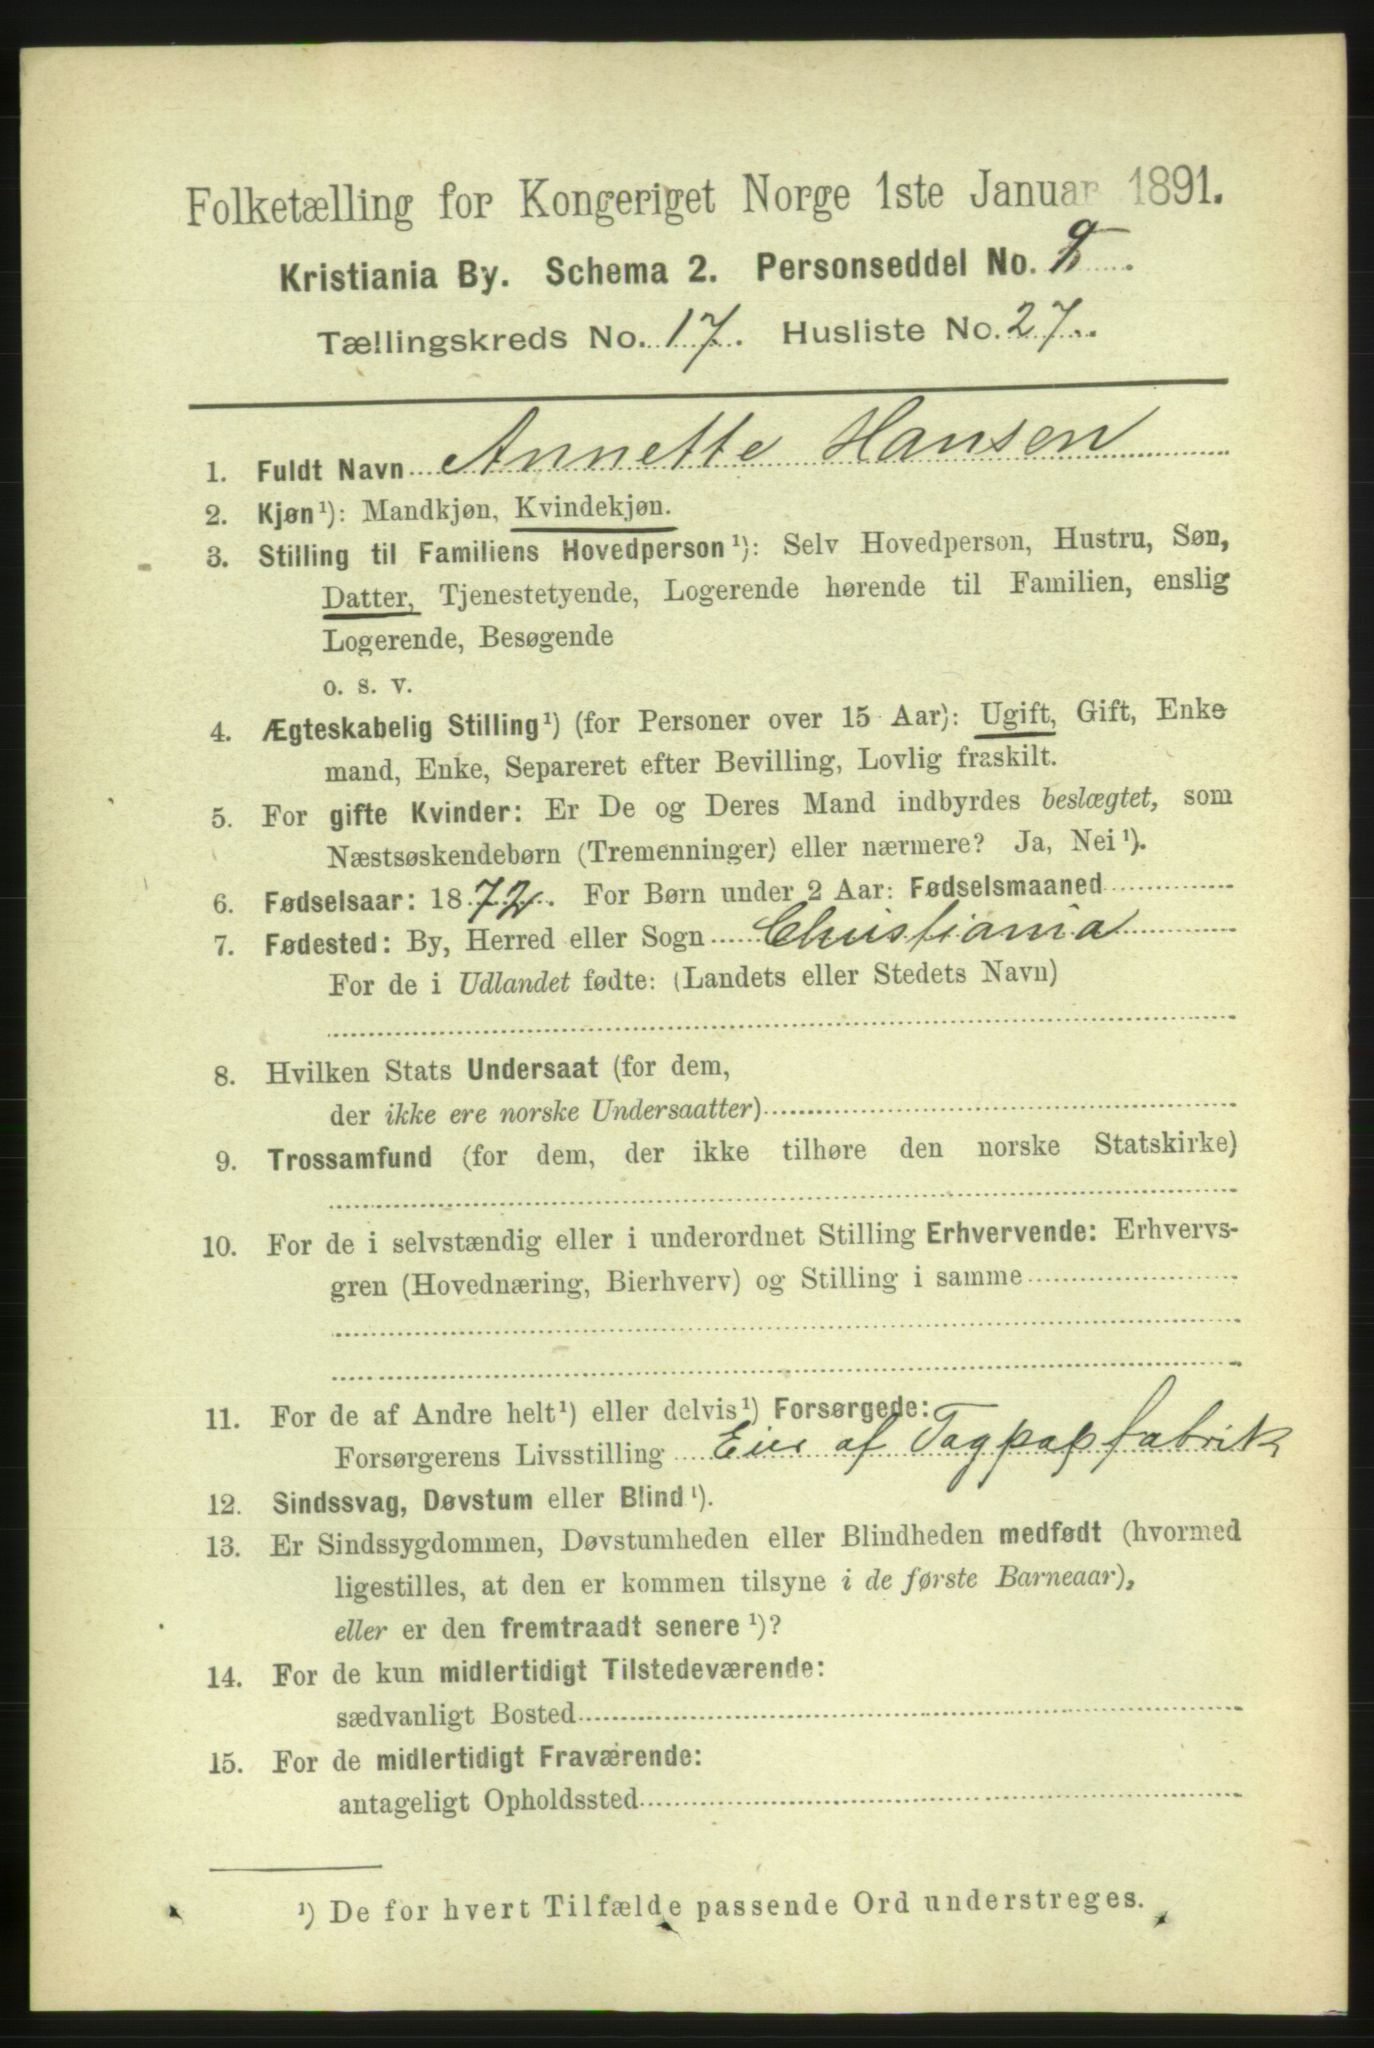 Folketælling for Kongeriget Norge 1ste Januar 1891.
Kristiania By. Schema 2. Personseddel No.
Tællingskreds No. 17. Husliste No. 27.
1. Fuldt Navn Annette Hansen
2. Kjøn¹): Mandkjøn, Kvindekjøn.
3. Stilling til Familiens Hovedperson¹): Selv Hovedperson, Hustru, Søn,
Datter, Tjenestetyende, Logerende hørende til Familien, enslig
Logerende, Besøgende
o. s. v.
4. Ægteskabelig Stilling¹) (for Personer over 15 Aar): Ugift, Gift, Enke
mand, Enke, Separeret efter Bevilling, Lovlig fraskilt.
5. For gifte Kvinder: Er De og Deres Mand indbyrdes beslægtet, som
Næstsøskendebørn (Tremenninger) eller nærmere? Ja, Nei¹).
6. Fødselsaar: 1872. For Børn under 2 Aar: Fødselsmaaned
7. Fødested: By, Herred eller Sogn Christiania
For de i Udlandet fødte: (Landets eller Stedets Navn)
8. Hvilken Stats Undersaat (for dem,
der ikke ere norske Undersaatter)
9. Trossamfund (for dem, der ikke tilhøre den norske Statskirke)
10. For de i selvstændig eller i underordnet Stilling Erhvervende: Erhvervs-
gren (Hovednæring, Bierhverv) og Stilling i samme
11. For de af Andre helt¹) eller delvis¹) Forsørgede:
Forsørgerens Livsstilling Eier af Tagpapfabrik
12. Sindssvag, Døvstum eller Blind¹).
13. Er Sindssygdommen, Døvstumheden eller Blindheden medfødt (hvormed
ligestilles, at den er kommen tilsyne i de første Barneaar),
eller er den fremtraadt senere¹)?
14. For de kun midlertidigt Tilstedeværende:
sædvanligt Bosted
15. For de midlertidigt Fraværende:
antageligt Opholdssted
¹) De for hvert Tilfælde passende Ord understreges.